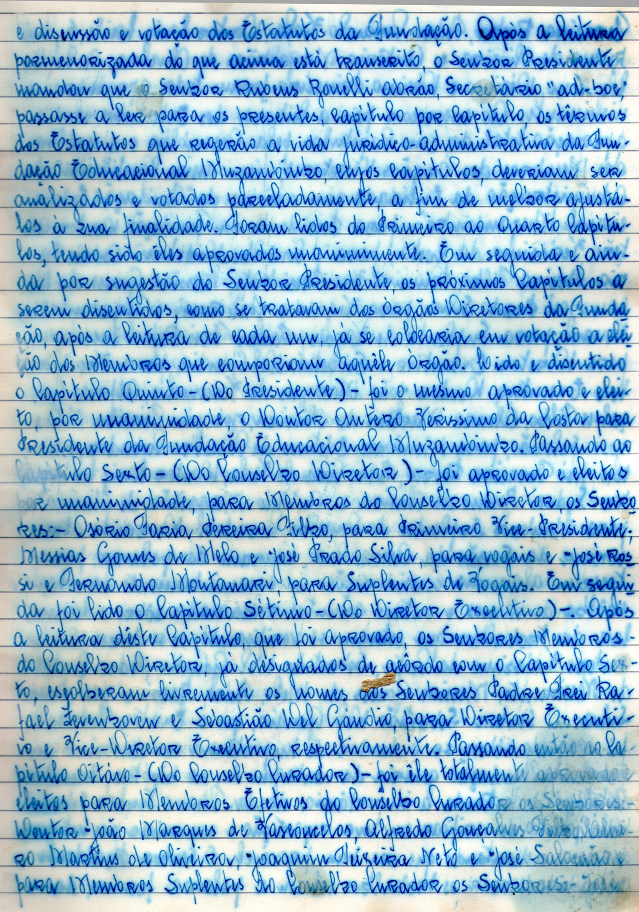 e discussão e votação dos Estatutos da Fundação. Após a leitura
pormenorizada do que acima está transcrito, o Senhor Presidente
mandou que o Senhor Rubens Zonelli abrão, Secretário "ad-hoc",
passasse a ler para os presentes, capítulo por capítulo, os têrmos
dos Estatutos que regerão a vida jurídico-administrativa da Fun-
dação Educacional Muzambinho, cujos capítulos, deveriam ser
analizados e votados parceladamente, a fim de melhor ajustá-
los à sua finalidade. Foram lidos do Primeiro ao Quarto Capítu-
los, tendo sido eles aprovados unanimimente. Em seguida e ain-
da por sugestão do Senhor Presidente, os próximos Capítulos a
serem discutidos, como se tratavam dos órgãos Diretores da Funda
ção, após a leitura de cada um, já se colocaria em votação a elei
ção dos Membros que comporiam aquêle órgão. Lido e discutido
o Capítulo Quinto-(Do Presidente)- foi o mesmo aprovado e elei-
to, por unanimidade, o Doutor Antero Veríssimo da Costa para
Presidente da Fundação Educacional Muzambinho. Passando ao
Capítulo Sexto-(Do Conselho Diretor)- foi aprovado e eleitos
por unanimidade, para Membros do Conselho Diretor, os Senho
res:- Osório Faria Pereira Filho, para Primeiro Vice-Presidente;
Messias Gomes de Melo e José Prado Silva, para vogais e José Ros
si e Fernando Montanari, para Suplentes de Vogais. Em segui
da foi lido o Capítulo Sétimo-(Do Diretor Executivo)-. Após
a leitura dêste Capítulo, que foi aprovado, os Senhores Membros
do Conselho Diretor, já designados de acôrdo com o Capítulo Sex-
to, escolheram livremente os nomes dos Senhores Padre Frei Ra-
fael Zevenhoven e Sebastião Del Gáudio, para Diretor Executi-
vo e Vice-Diretor Executivo, respectivamente. Passando então ao Ca
pítulo Oitavo-(Do Conselho Curador)- foi êle totalmente aprovado e
eleitos para Membros Efetivos do Conselho Curador os Senhores:-
Doutor João Marques de Vasconcelos, Alfredo Gonçalves
ro Martins de Oliveira, Joaquim Teixeira Neto e José
para Membros Suplentes do Conselho Curador os Senhores:- José